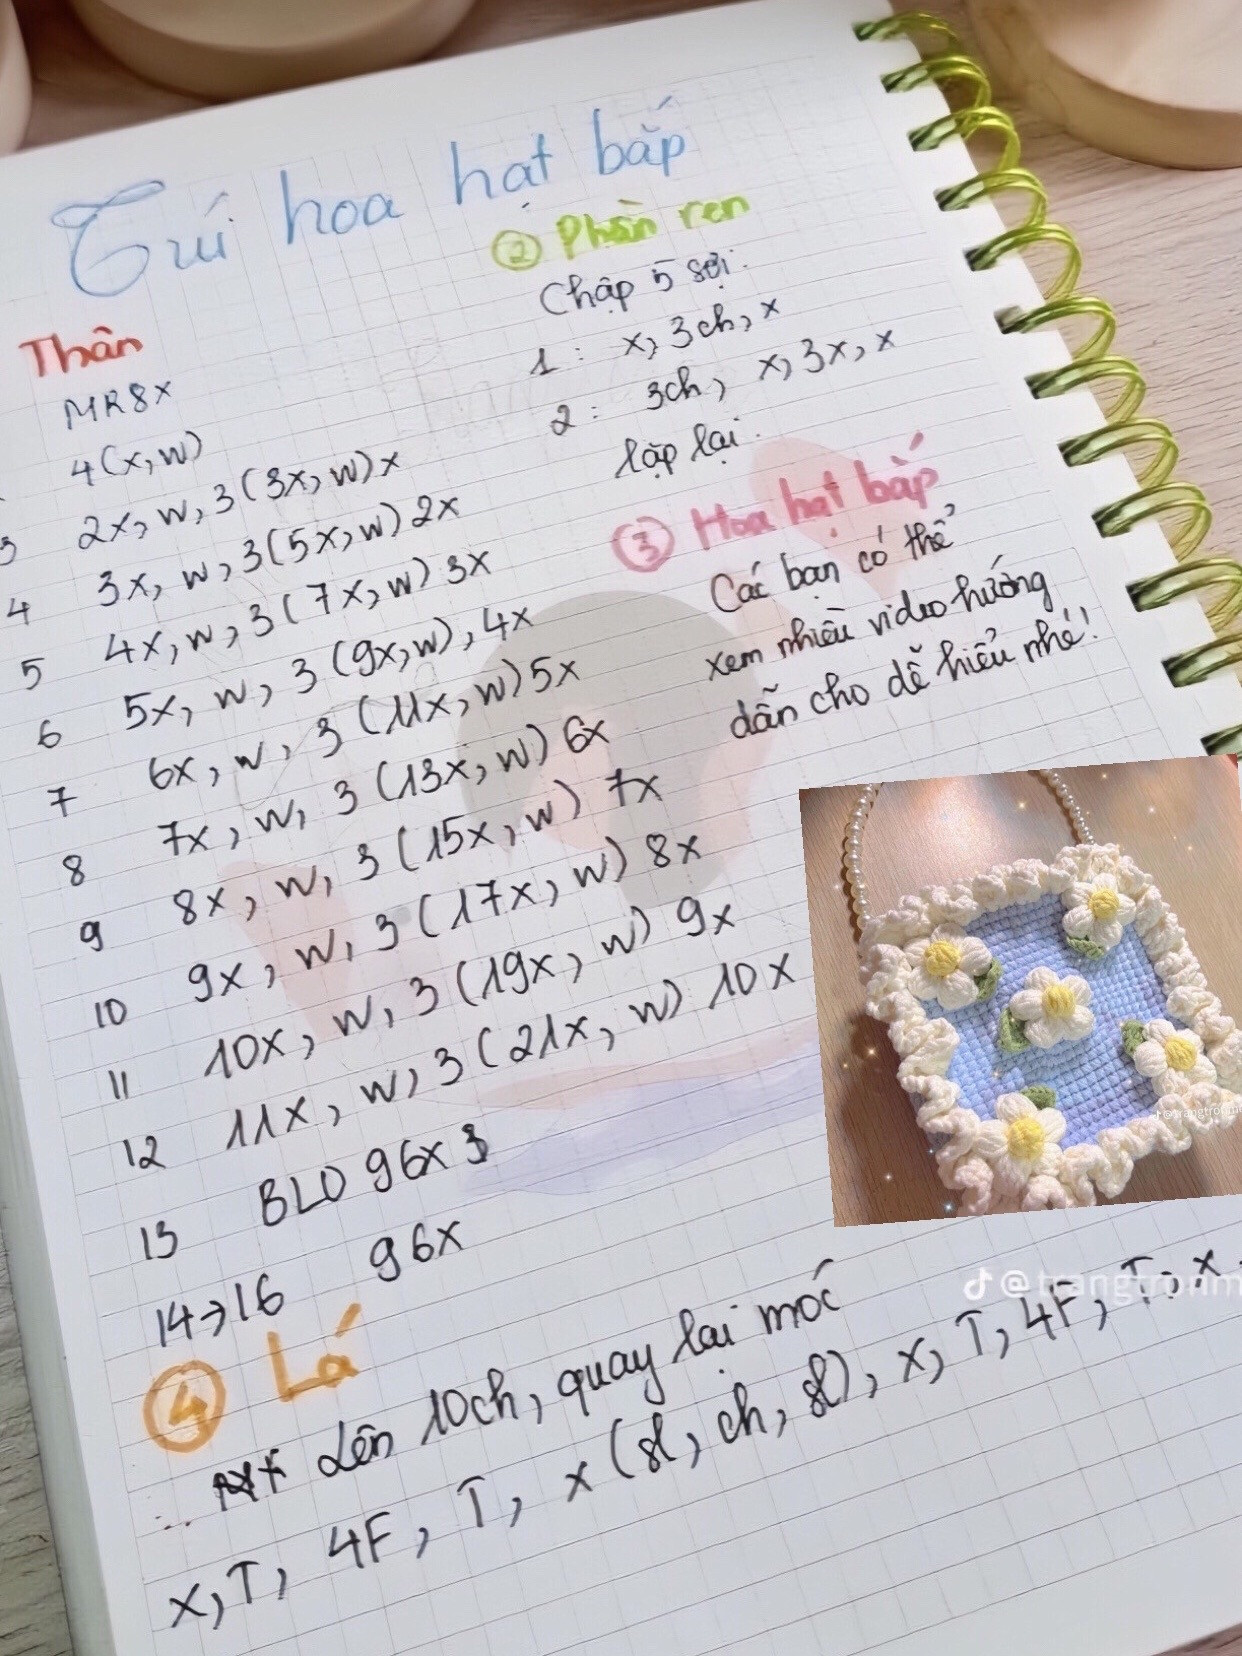 Túi hoa hạt bắp
Thân
MR8x
4(x, w)
3 2x, w, 3(3x, w) x
4 3x, w, 3(5x, w) 2x
5 4x, w, 3(7x, w) 3x
6 5x, w, 3(9x, w), 4x
7 6x, w, 3(11x, w) 5x
8 7x, w, 3(13x, w) 6x
9 8x, w, 3(15x, w) 7x
10 9x, w, 3(17x, w) 8x
11 10x, w, 3(19x, w) 9x
12 11x, w, 3(21x, w) 10x
13 BLO 96x
14→16 96x
② Phần ren
Chập 5 sợi.
1: x, 3ch, x
2: 3ch, x, 3x, x
lặp lại.
③ Hoa hạt bắp
Các bạn có thể
xem nhiều video hướng
dẫn cho dễ hiểu nhé!
④ Lá
Lên 10ch, quay lại móc
x, T, 4F, T, x (sl, ch, sl), x, T, 4F, T, x
@trangtronme
@trangtronme